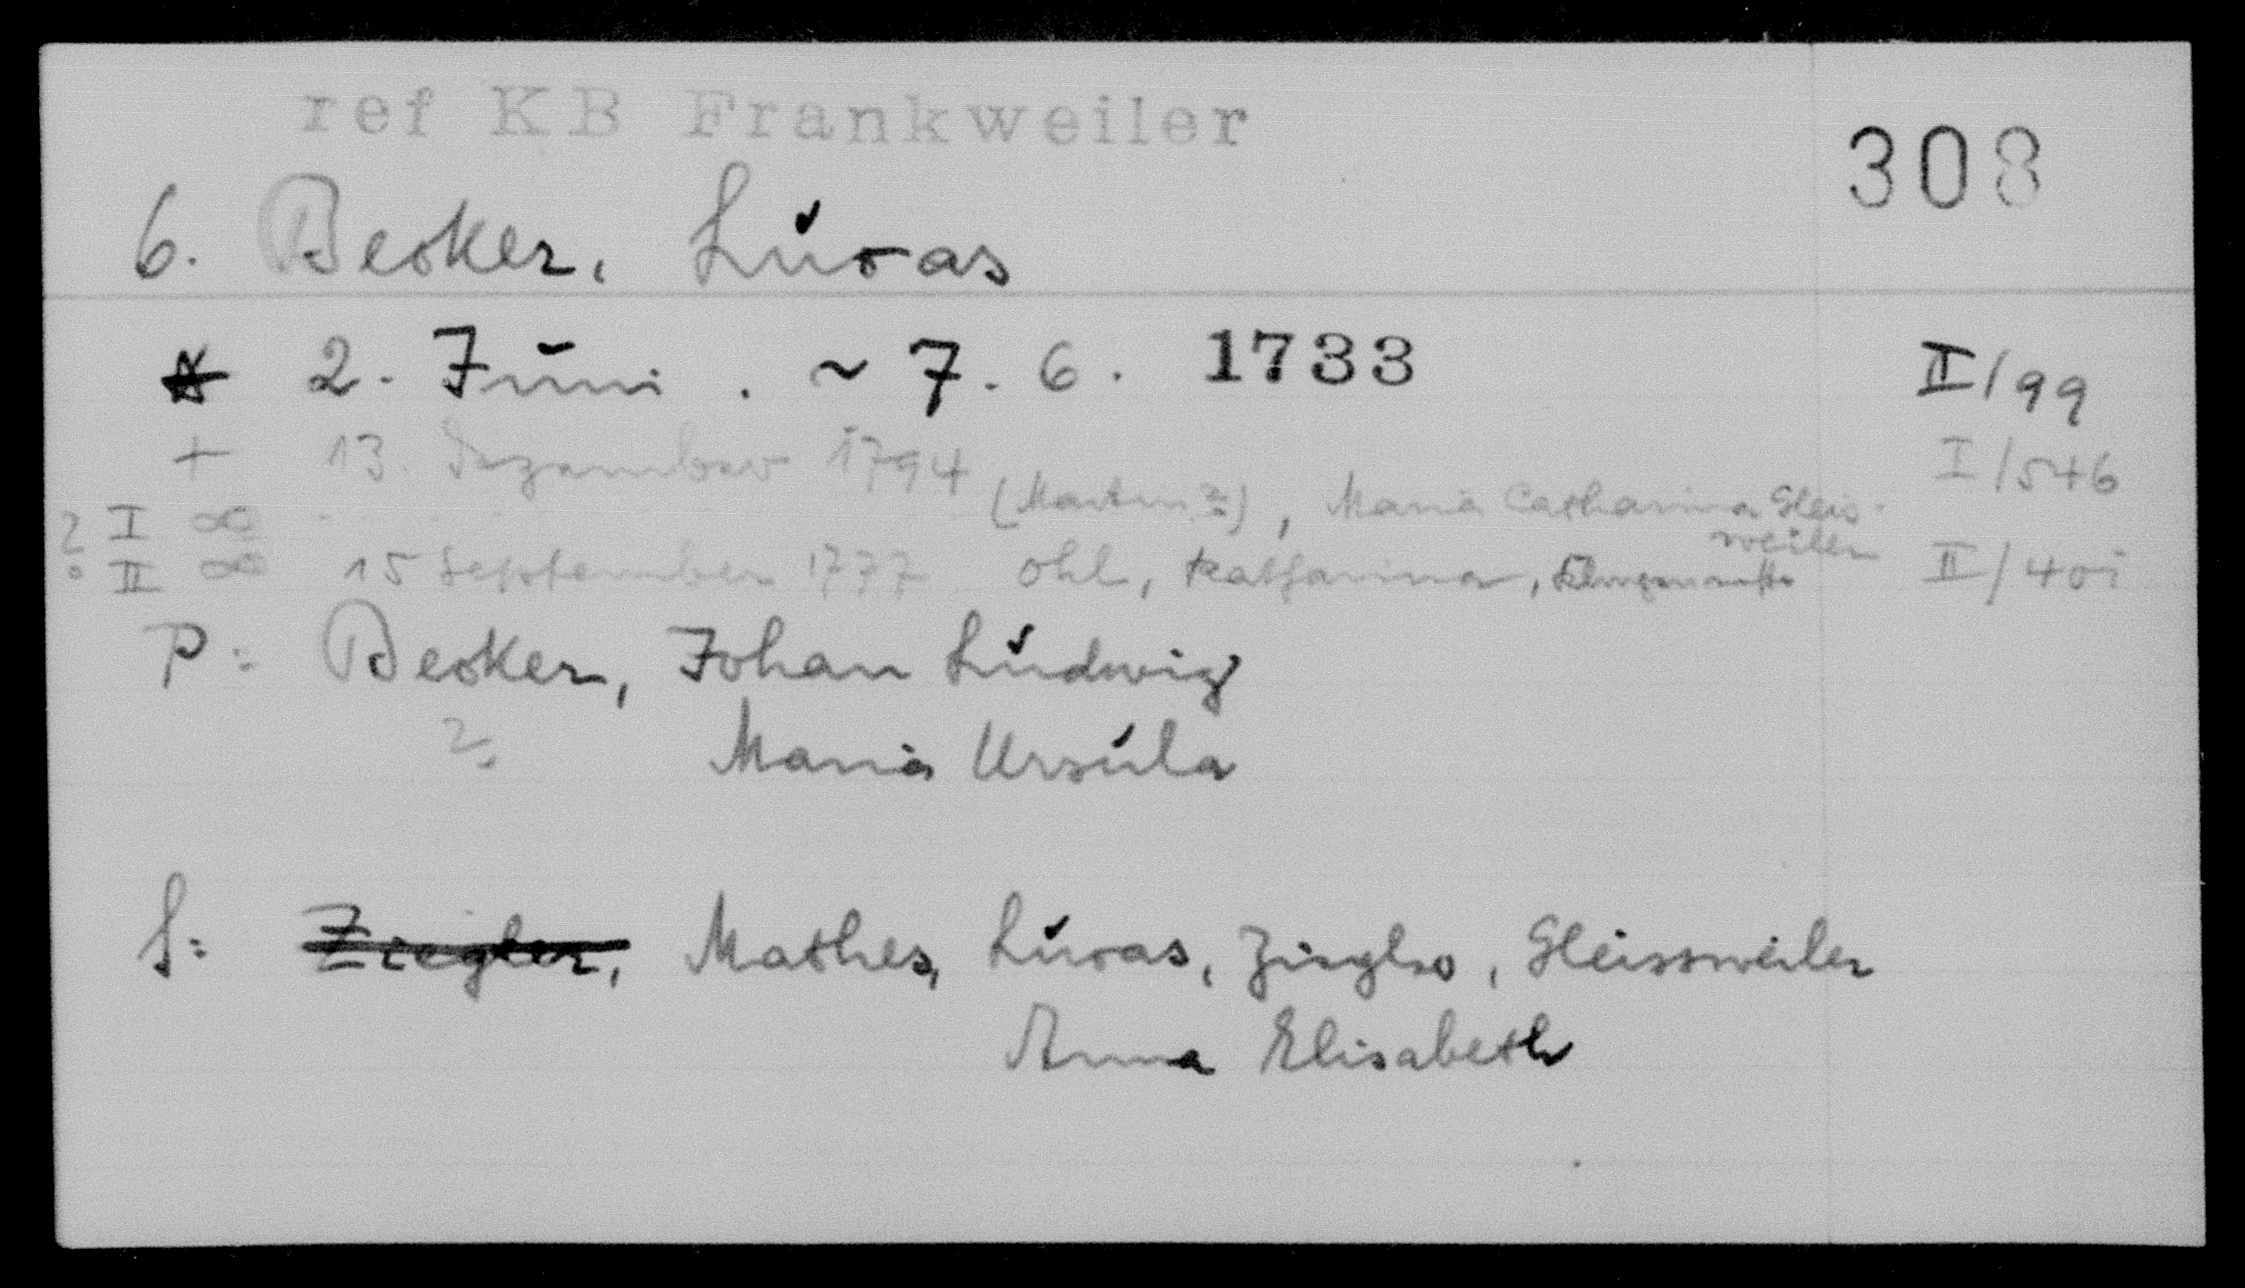 ref KB Frankweiler
308
6. Becker, Lucas
* 2. Juni. ~ 7. 6. 1733 II/99
+ 13. Dezember 1794 I/546
? I ∞ (Martin?), Maria Catharina Gleis-
weiler
? II ∞ 15 September 1777 Ohl, Katharina, II/401
P: Becker, Johan Ludwig
? Maria Ursula
S: Ziegler, Mathes, Lucas, Ziegler, Gleissweiler
Anna Elisabeth